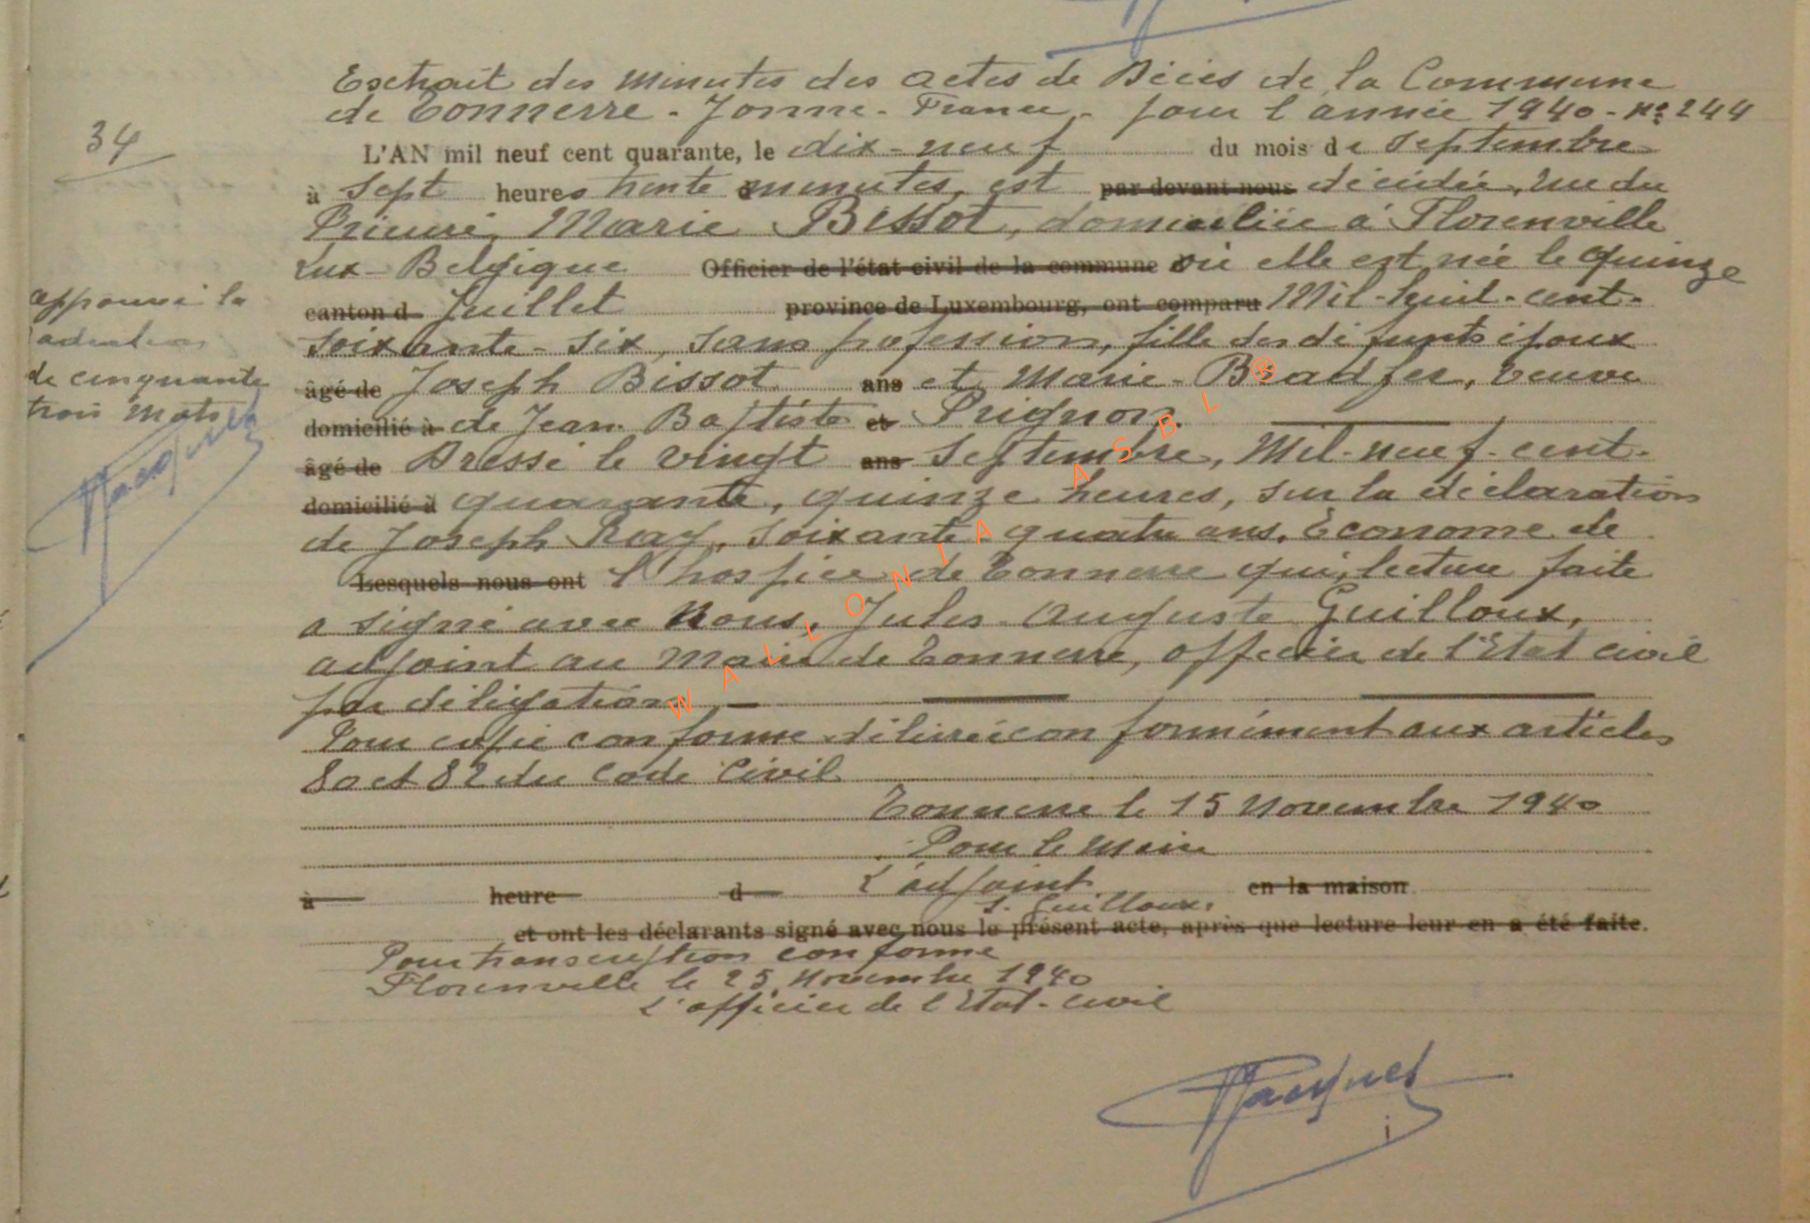 Extrait des minutes des actes de Décès de la Commune
de Tonnerre - Yonne - France - pour l'année 1940 - N° 244
34
L'AN mil neuf cent quarante, le dix-neuf du mois de Septembre
à Sept heures trente minutes, est par devant nous décédée, rue du
Prieuré, Marie Bissot, domiciliée à Florenville
Lux - Belgique Officier de l'état civil de la commune où elle est née le quinze
canton d Juillet province de Luxembourg, ont comparu Mil-huit-cent-
soixante-six, sans profession, fille des défunts époux
âgé de Joseph Bissot ans et Marie- , veuve
domicilié à de Jean Baptiste et Prignon.
âgé de Dressé le vingt ans Septembre, Mil-neuf-cent-
domicilié à quarante, quinze heures, sur la déclaration
de Joseph Ray, soixante-quatre ans, Econome de
Lesquels nous ont l'hospice de Tonnerre qui, lecture faite
a signé avec Nous, Jules Auguste Guilloux,
adjoint au Maire de Tonnerre, officier de l'Etat civil
par délégation
Pour copie conforme délivrée conformément aux articles
80 et 82 du Code Civil
Tonnerre le 15 Novembre 1940
Pour le Maire
à heure d L'adjoint en la maison
J. Guilloux.
et ont les déclarants signé avec nous le présent acte, après que lecture leur en a été faite.
Pour transcription conforme
Florenville le 25 Novembre 1940
L'officier de l'Etat-civil
approuvé la
radiation
de cinquante
trois mots
WALLONIA ASBL ®